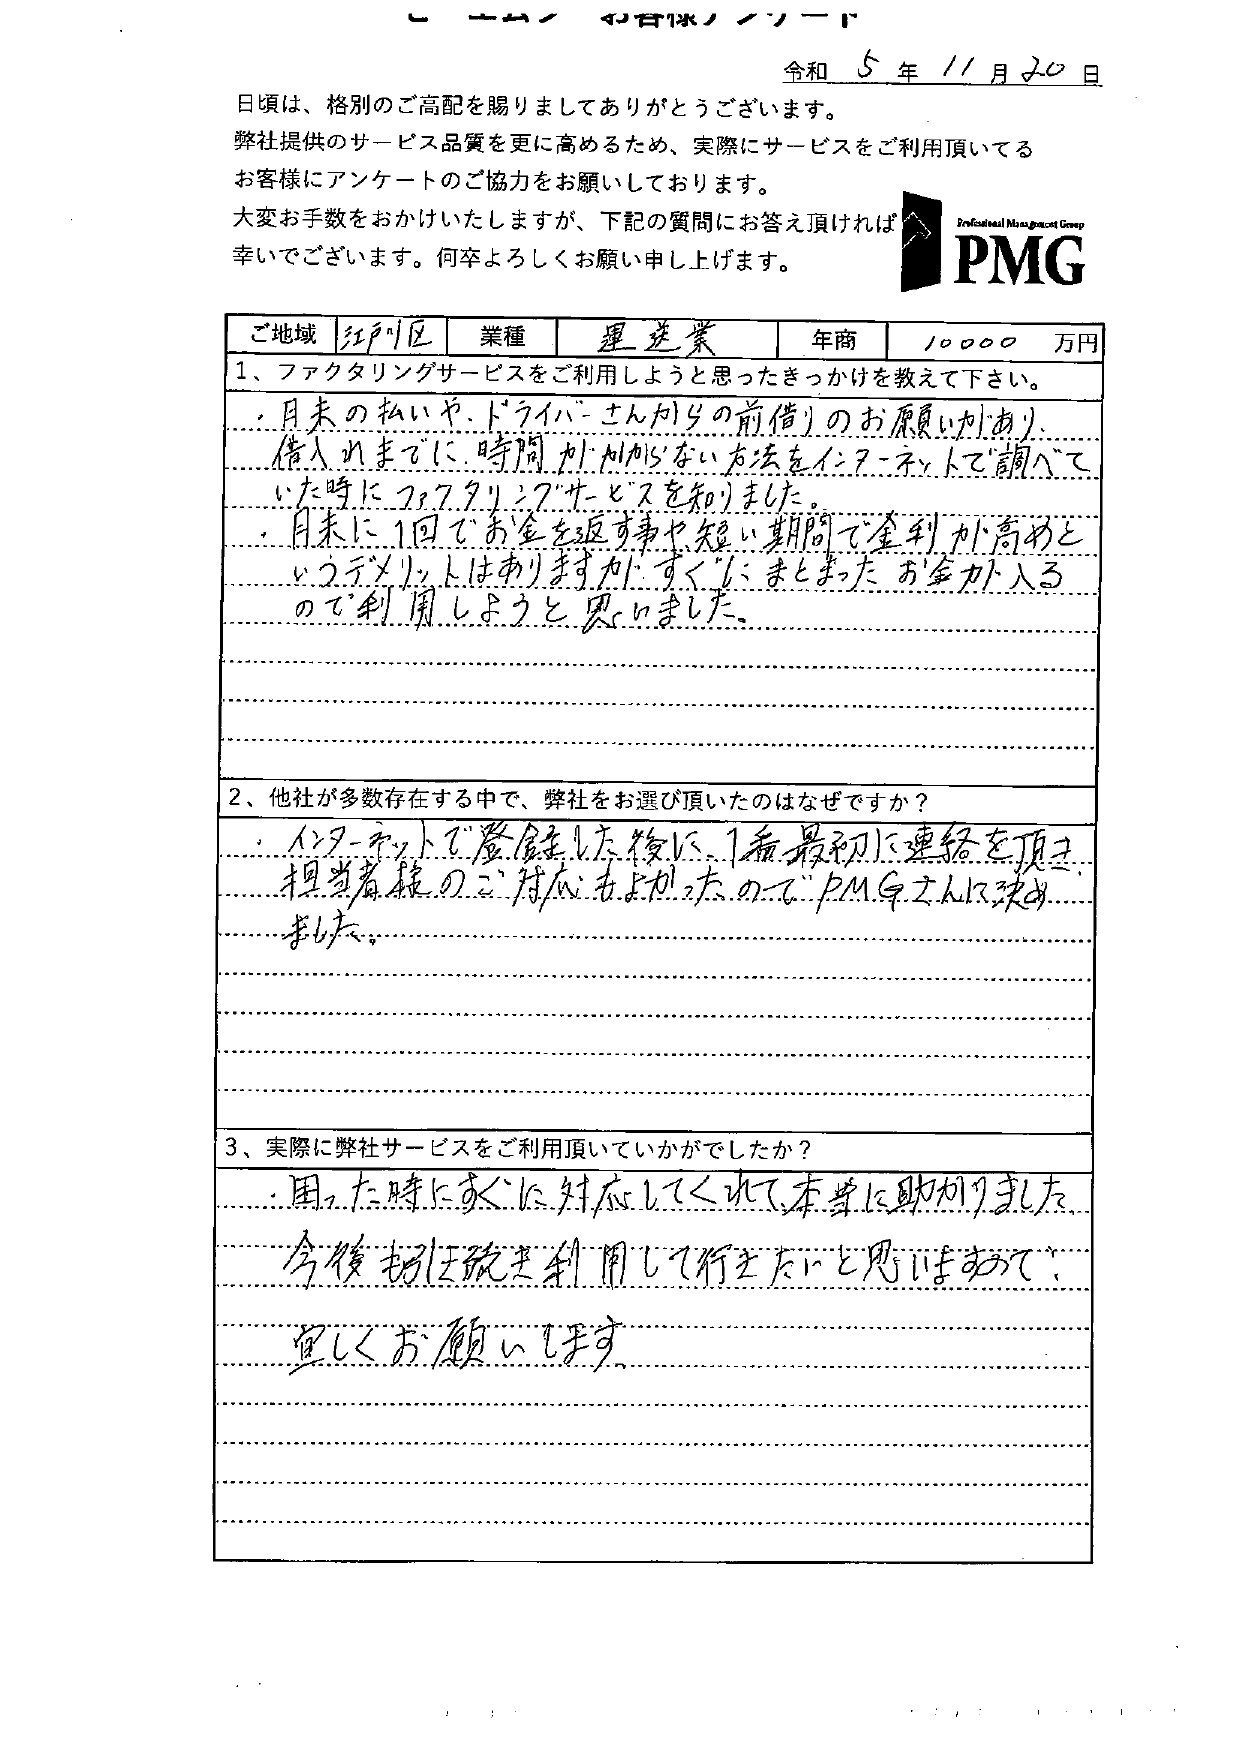 ピーエムジー お客様アンケート
令和 5 年 11 月 20 日
日頃は、格別のご高配を賜りましてありがとうございます。
弊社提供のサービス品質を更に高めるため、実際にサービスをご利用頂いてる
お客様にアンケートのご協力をお願いしております。
大変お手数をおかけいたしますが、下記の質問にお答え頂ければ
幸いでございます。何卒よろしくお願い申し上げます。
Professional Management Group
PMG
ご地域 江戸川区 業種 運送業 年商 10000 万円
1、ファクタリングサービスをご利用しようと思ったきっかけを教えて下さい。
・月末の払いや、ドライバーさんからの前借りのお願いがあり、
借入れまでに時間がかからない方法をインターネットで調べて
いた時にファクタリングサービスを知りました。
・月末に1回でお金を返す事や短い期間で金利が高めと
いうデメリットはありますが、すぐにまとまったお金が入る
ので利用しようと思いました。
2、他社が多数存在する中で、弊社をお選び頂いたのはなぜですか？
・インターネットで登録した後に、1番最初に連絡を頂き、
担当者様のご対応もよかったのでPMGさんに決め
ました。
3、実際に弊社サービスをご利用頂いていかがでしたか？
・困った時にすぐに対応してくれて、本当に助かりました。
今後も引き続き利用して行きたいと思いますので、
宜しくお願いします。